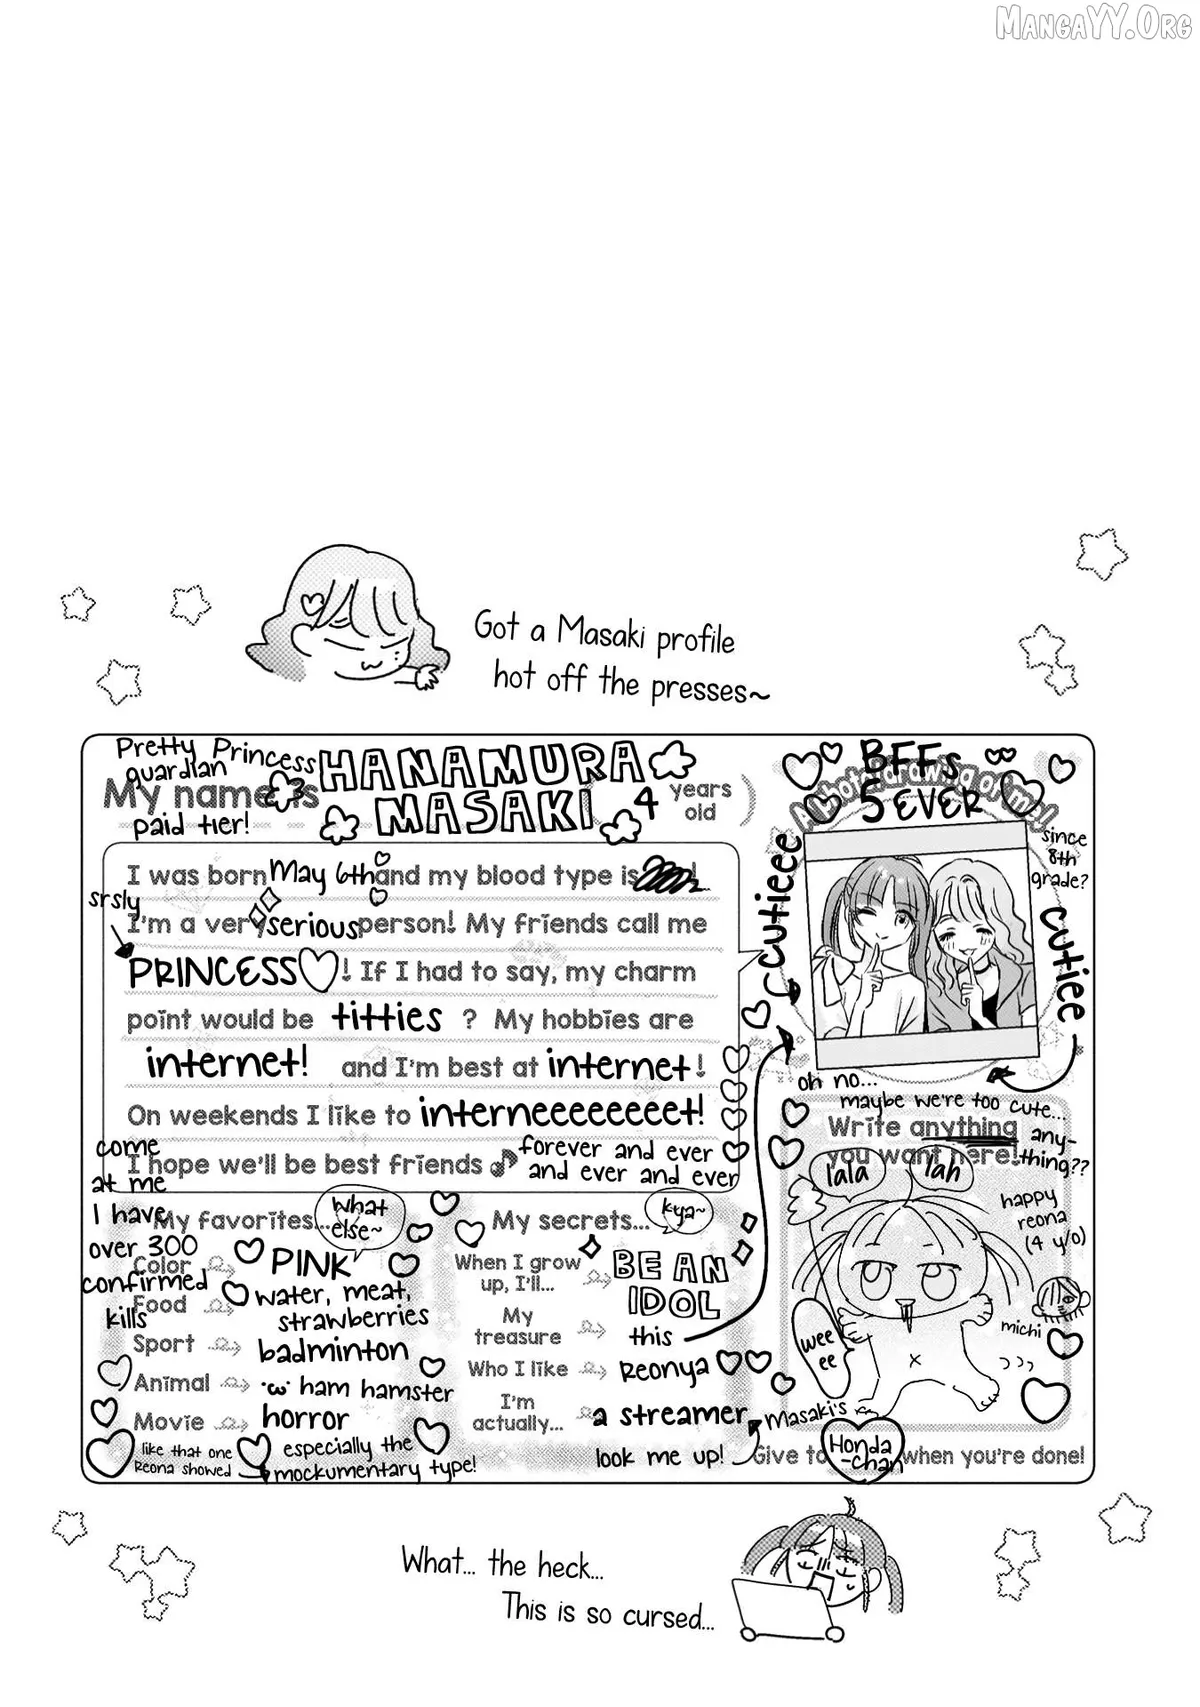 MANGAYY.ORG
Got a Masaki profile
hot off the presses~
Pretty Princess
guardian
My name is
HANAMURA
MASAKI
4 years
old )
paid tier!
I was born May 6th and my blood type is
srsly
I'm a very serious person! My friends call me
PRINCESS♡! If I had to say, my charm
point would be titties ? My hobbies are
internet! and I'm best at internet!
On weekends I like to interneeeeeeeet!
I hope we'll be best friends♪ forever and ever
and ever and ever
come
at me
I have
over 300
confirmed
kills
My favorites...
what
else~
Color PINK
Food water, meat,
strawberries
Sport badminton
Animal ·ω· ham hamster
Movie horror
like that one
Reona showed
especially the
mockumentary type!
My secrets...
kya~
When I grow
up, I'll...
BE AN
IDOL
My
treasure
this
Who I like Reonya ♡♡
I'm
actually...
a streamer
look me up!
BFFs
5 EVER
A photo/drawing of me!
since
8th
grade?
cutieee
cutiee
oh no...
maybe we're too cute...
Write anything
you want here!
any-
thing??
lala
lah
happy
reona
(4 y/o)
michi
weee
ee
Masaki's
Give to Honda
-chan when you're done!
What... the heck...
This is so cursed...